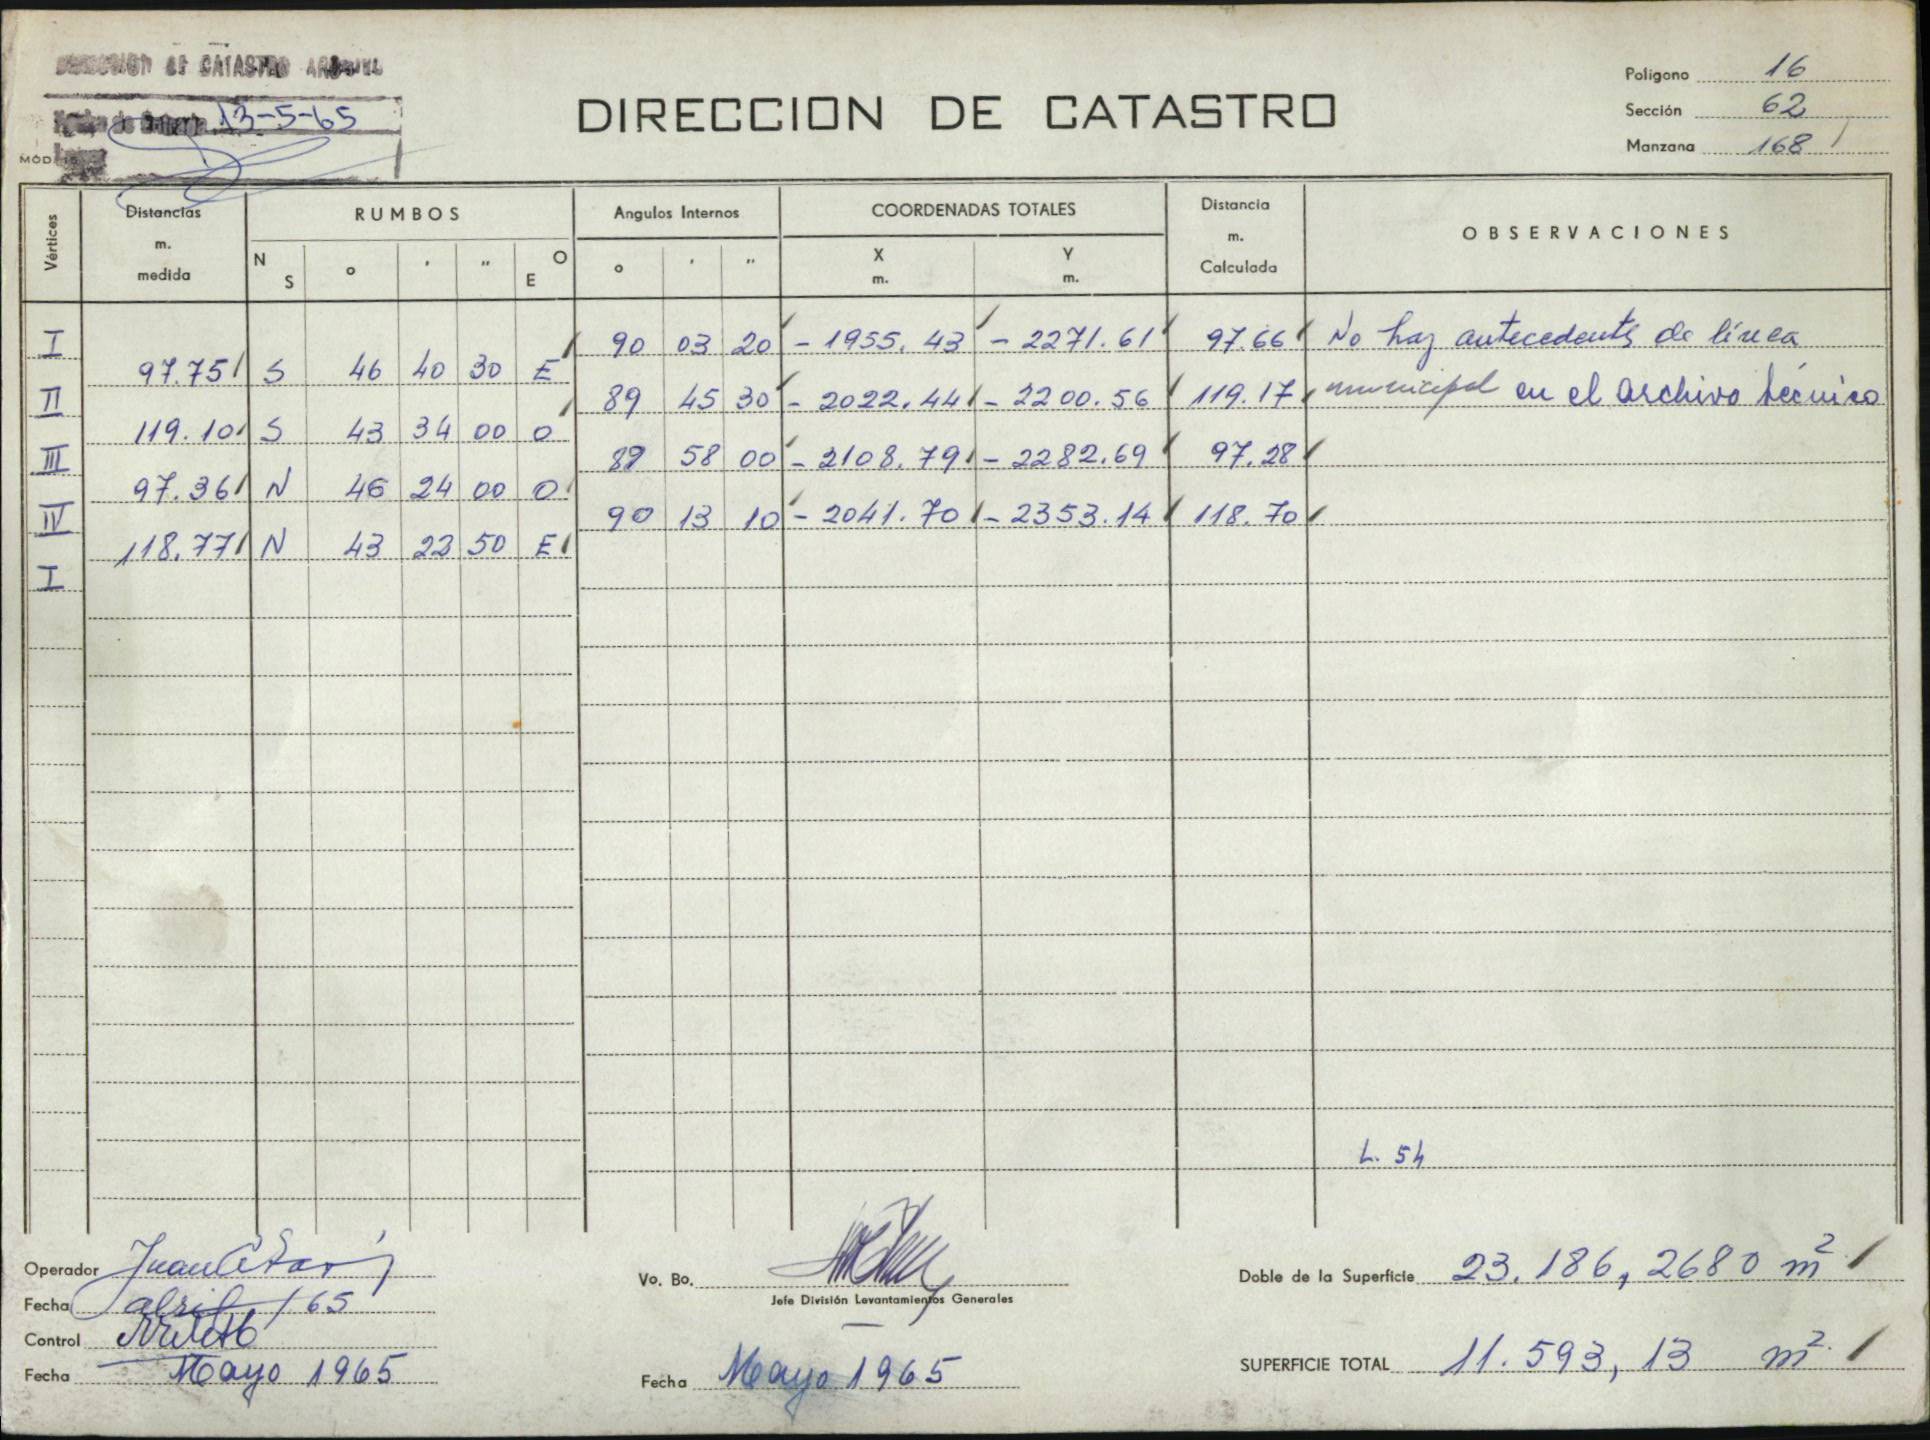 DIRECCION DE CATASTRO ARCHIVO
Fecha de Entrada 13-5-65
MOD.
DIRECCION DE CATASTRO
Polígono 16
Sección 62
Manzana 168
Vértices
Distancias m. medida
RUMBOS
N S ° ' " O E
Angulos Internos
° ' "
COORDENADAS TOTALES
X m. Y m.
Distancia m. Calculada
OBSERVACIONES
I 90 03 20 - 1955.43 - 2271.61 97.66 No hay antecedentes de línea
97.75 S 46 40 30 E
II 89 45 30 - 2022.44 - 2200.56 119.17 municipal en el archivo técnico
119.10 S 43 34 00 O
III 89 58 00 - 2108.79 - 2282.69 97.28
97.36 N 46 24 00 O
IV 90 13 10 - 2041.70 - 2353.14 118.70
118.77 N 43 22 50 E
I
L. 54
Operador
Fecha abril /65
Control
Fecha Mayo 1965
Vo. Bo.
Jefe División Levantamientos Generales
Fecha Mayo 1965
Doble de la Superficie 23.186,2680 m²
SUPERFICIE TOTAL 11.593,13 m²